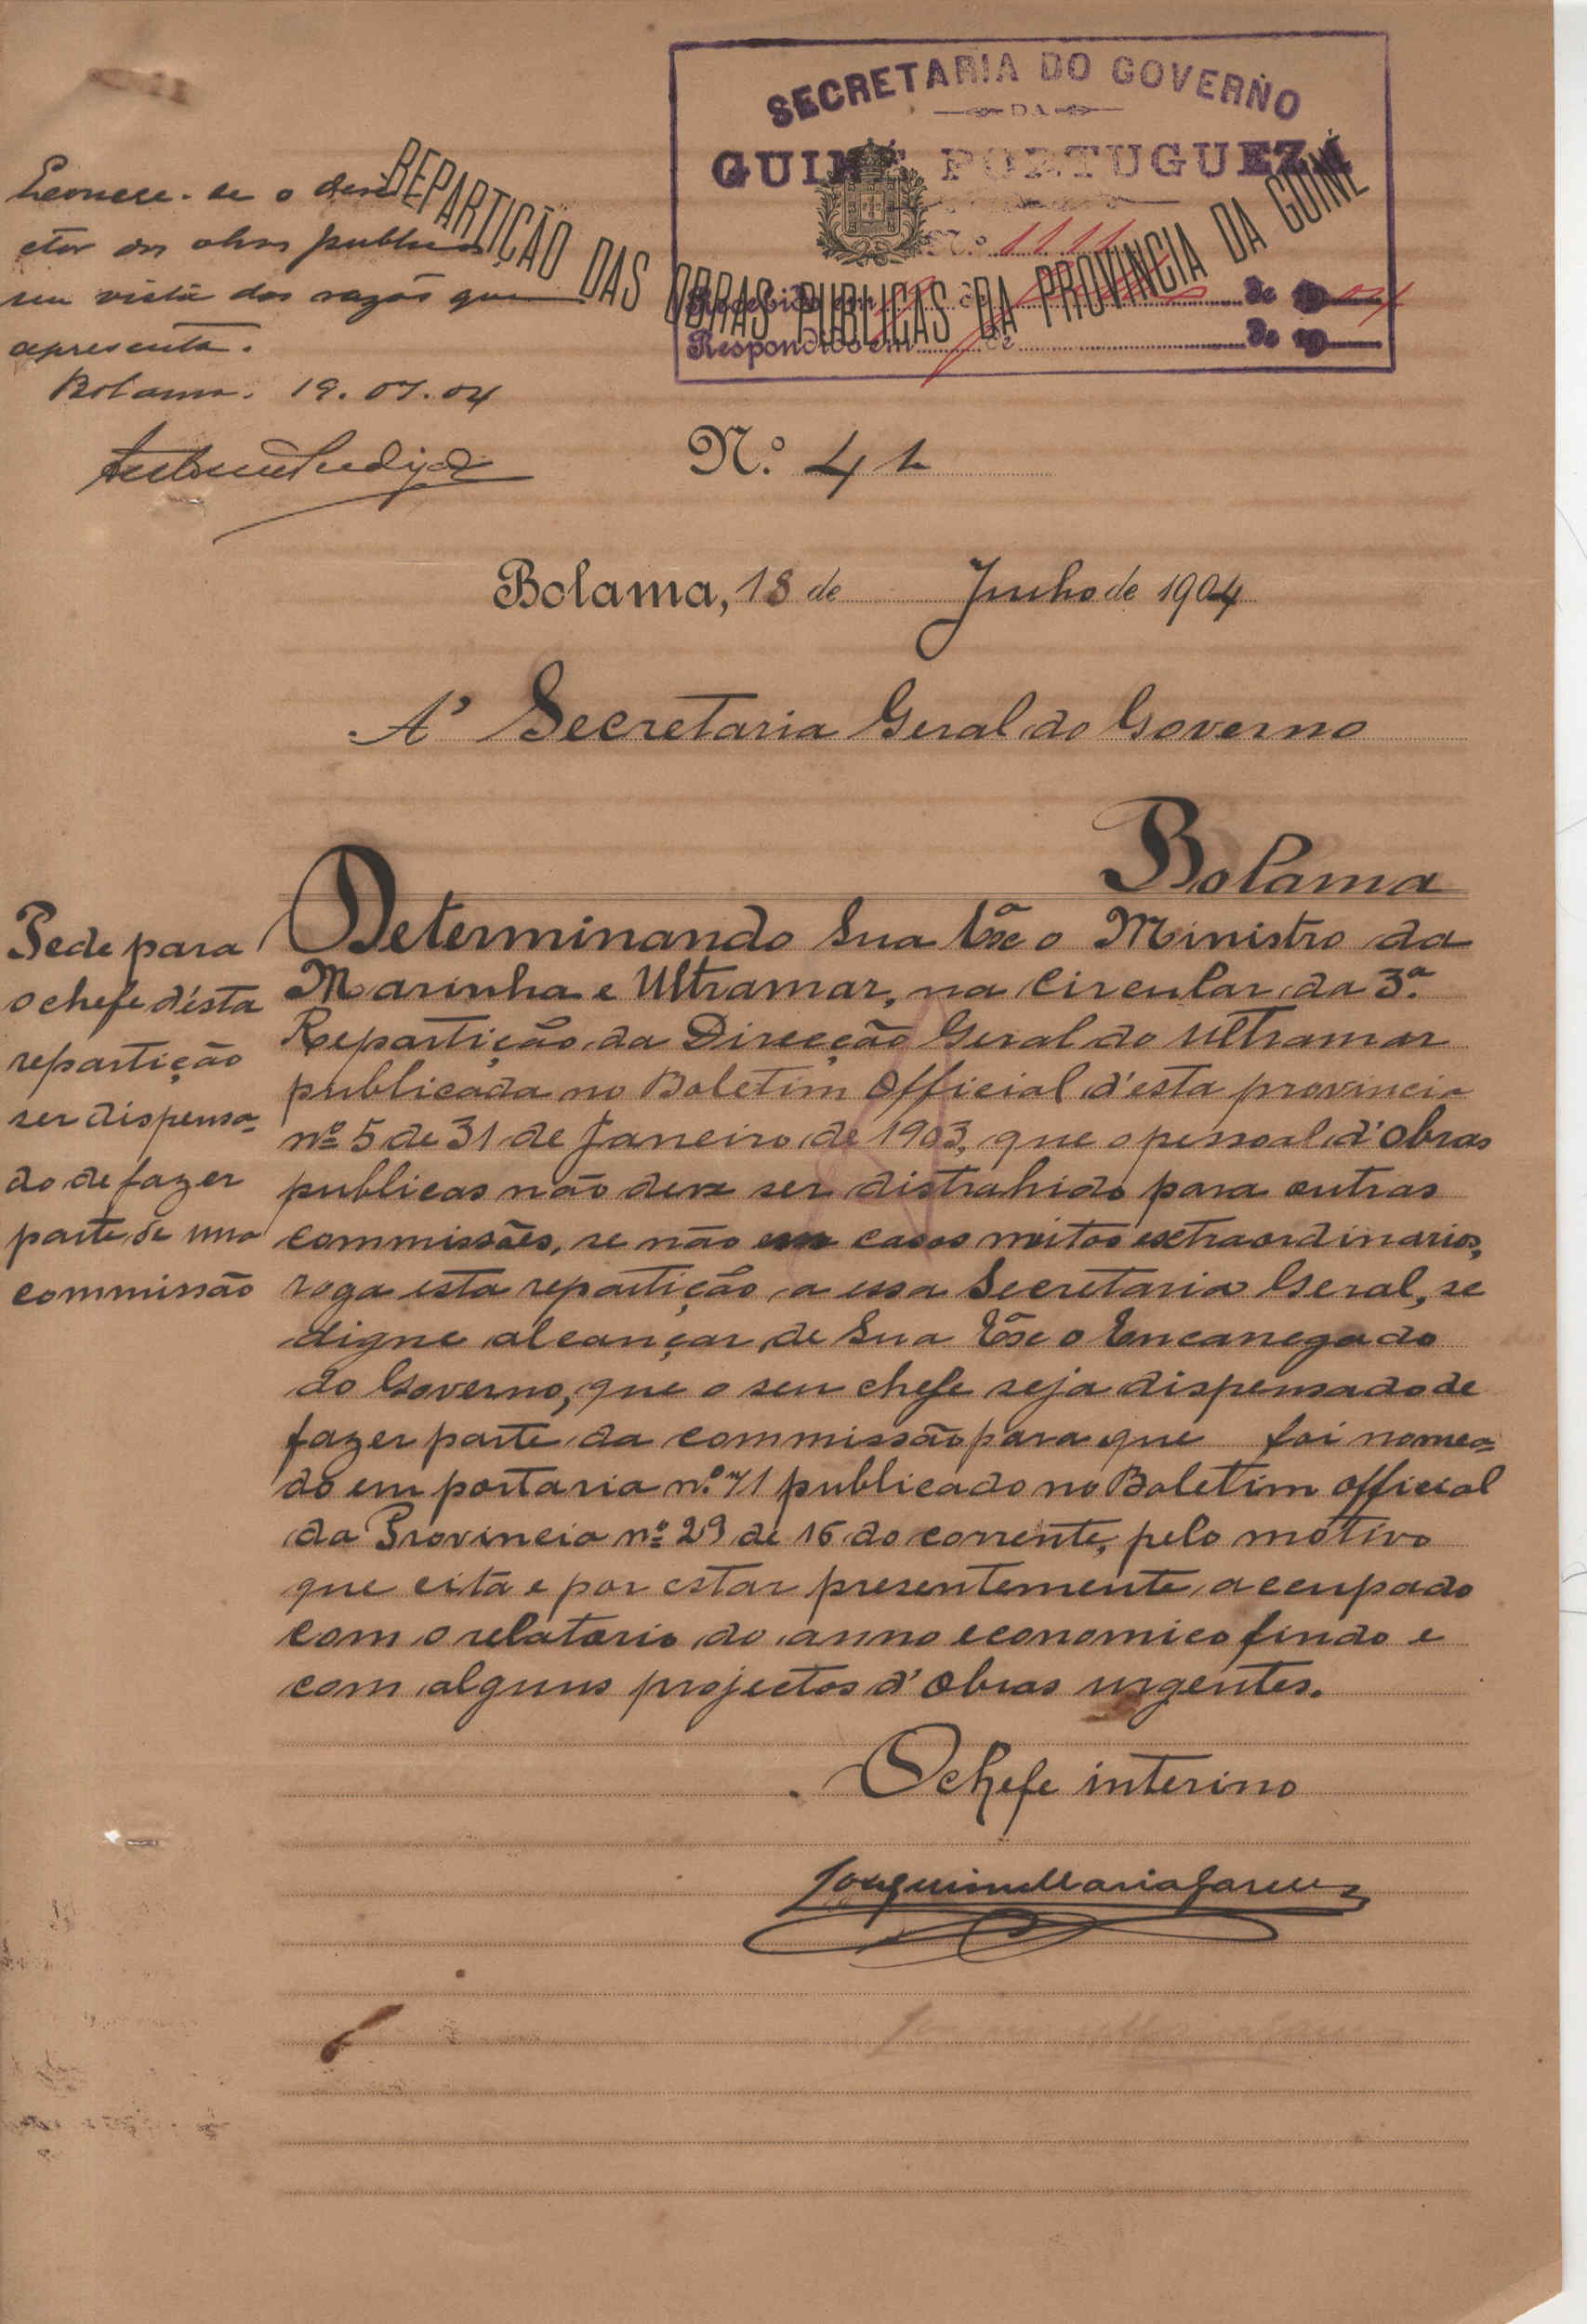 SECRETARIA DO GOVERNO
DA
GUINÉ PORTUGUEZA
N.º 1111
Recebido em de de 1904
Respondido em de de 19
REPARTIÇÃO DAS OBRAS PUBLICAS DA PROVINCIA DA GUINÉ
se o dire
ctor das obras publicas
em vista das razões que
apresenta.
Bolama. 19.07.04
N.º 42
Bolama, 18 de Junho de 1904
A' Secretaria Geral do Governo
Bolama
Pede para
o chefe d'esta
repartição
ser dispensa-
do de fazer
parte de uma
commissão
Determinando Sua Exª o Ministro da
Marinha e Ultramar, na circular da 3.ª
Repartição da Direcção Geral do Ultramar
publicada no Boletim Official d'esta provincia
nº 5 de 31 de Janeiro de 1903, que o pessoal d'obras
publicas não deve ser distrahido para outras
commissões, se não em casos muitos extraordinarios,
roga esta repartição a essa Secretaria Geral, se
digne alcançar de Sua Exª o Encarregado
do Governo, que o seu chefe seja dispensado de
fazer parte da commissão para que foi nomea-
do em portaria n.º 71 publicado no Boletim official
da Provincia nº 29 de 16 do corrente, pelo motivo
que cita e por estar presentemente occupado
com o relatorio do anno economico findo e
com alguns projectos d'obras urgentes.
O chefe interino
Joaquim Maria Garcez